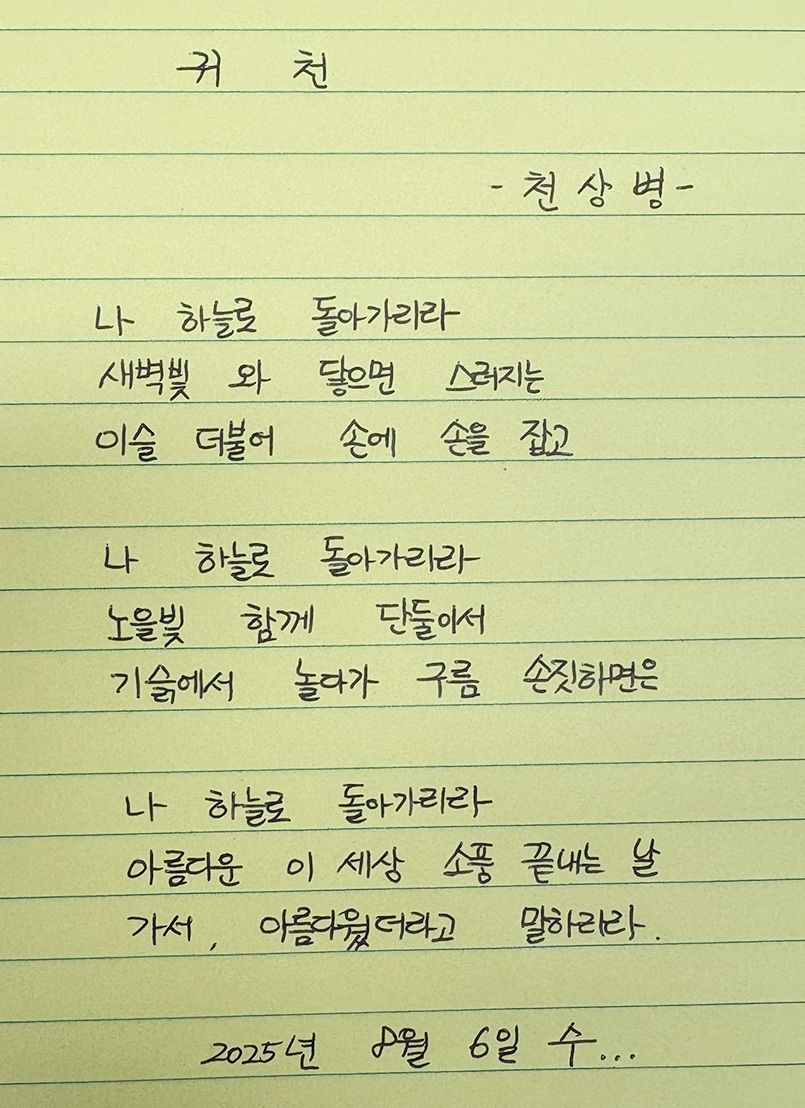 귀 천
- 천 상 병 -
나 하늘로 돌아가리라
새벽빛 와 닿으면 스러지는
이슬 더불어 손에 손을 잡고
나 하늘로 돌아가리라
노을빛 함께 단둘이서
기슭에서 놀다가 구름 손짓하면은
나 하늘로 돌아가리라
아름다운 이 세상 소풍 끝내는 날
가서, 아름다웠더라고 말하리라.
2025년 8월 6일 수...